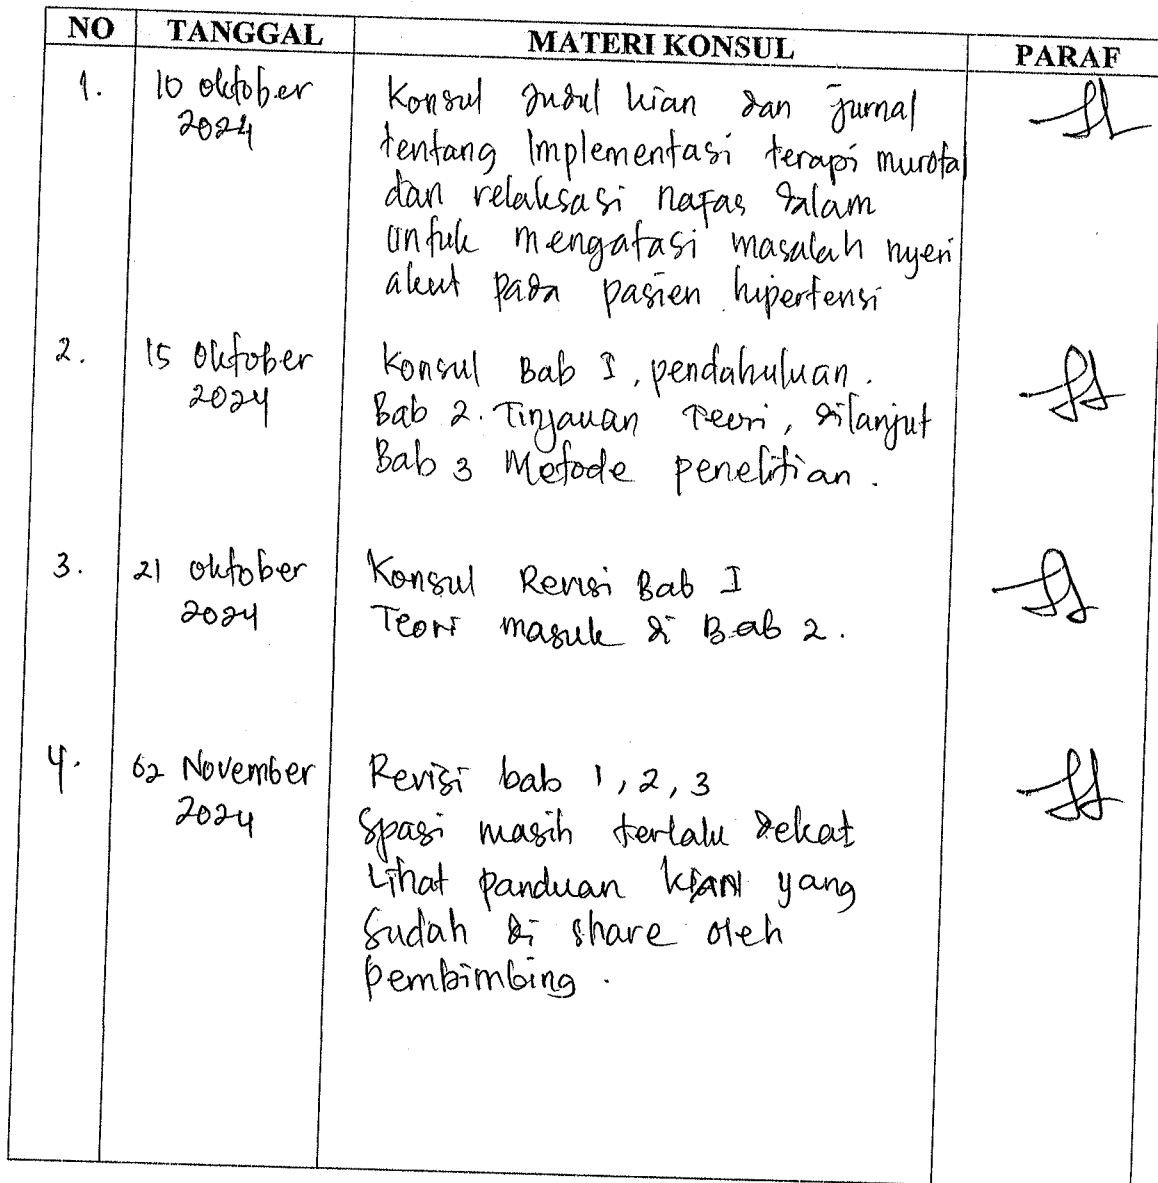 NO TANGGAL MATERI KONSUL PARAF
1. 10 oktober Konsul Judul kian dan jurnal
2024 tentang Implementasi terapi murota
dan relaksasi nafas dalam
untuk mengatasi masalah nyeri
akut pada pasien hipertensi
2. 15 Oktober Konsul Bab I, pendahuluan.
2024 Bab 2. Tinjauan Teori, dilanjut
Bab 3 Metode penelitian.
3. 21 oktober Konsul Revisi Bab I
2024 Teori masuk di Bab 2.
4. 02 November Revisi bab 1, 2, 3
2024 Spasi masih terlalu dekat
Lihat panduan KIAN yang
Sudah di share oleh
pembimbing.